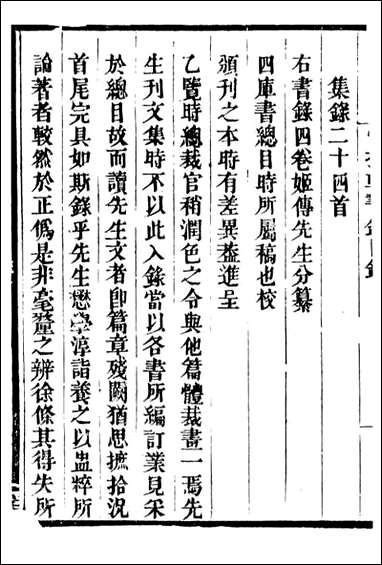 集錄二十四首
右書錄四卷姬傳先生分纂
四庫書總目時所屬稿也校
頒刊之本時有差異葢進呈
乙覽時總裁官稍潤色之令與他篇體裁畫一焉先
生刊文集時不以此入錄當以各書所編訂業見采
於總目故而讀先生文者卽篇章殘闕猶思摭拾況
首尾完具如斯錄乎先生懋學淳詣養之以盅粹所
論著者較然於正僞是非毫釐之辨徐條其得失所